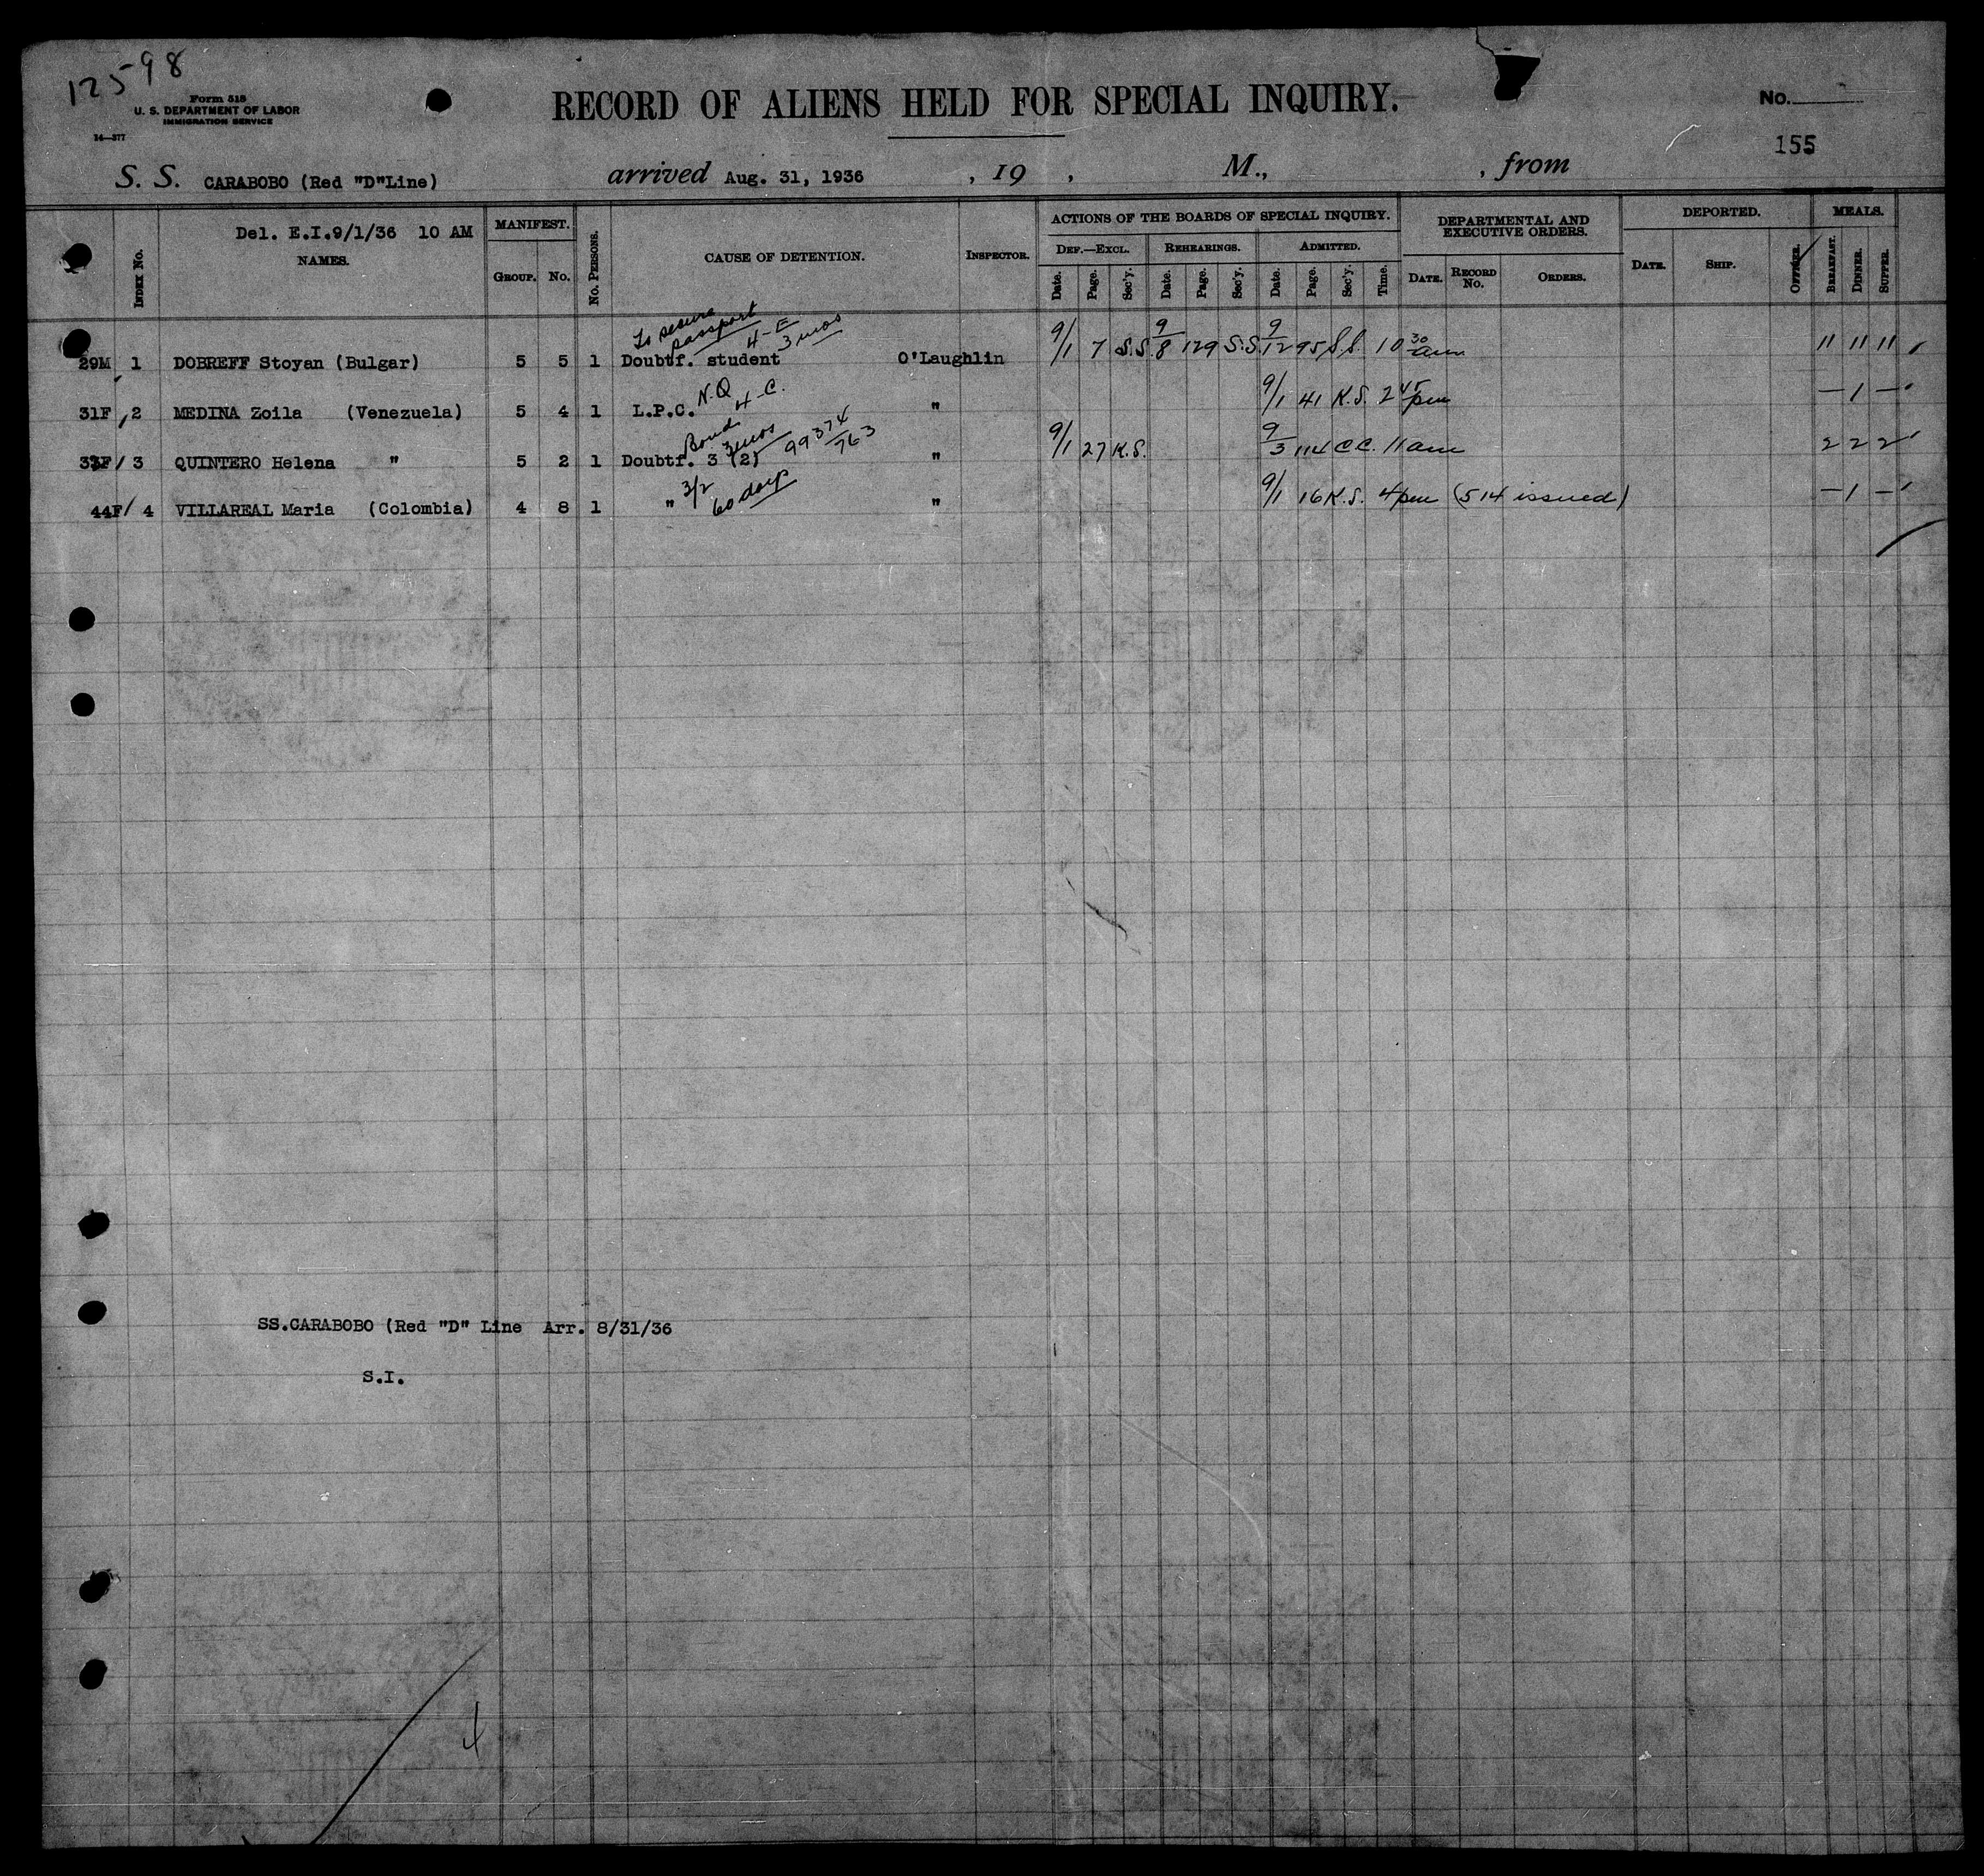 12598
Form 518
U. S. DEPARTMENT OF LABOR
IMMIGRATION SERVICE
14—377
RECORD OF ALIENS HELD FOR SPECIAL INQUIRY.
No.
155
S. S. CARABOBO (Red "D"Line) arrived Aug. 31, 1936 , 19 , M., , from
Del. E.I.9/1/36 10 AM
INDEX No. NAMES. MANIFEST. GROUP. No. No. PERSONS. CAUSE OF DETENTION. INSPECTOR.
ACTIONS OF THE BOARDS OF SPECIAL INQUIRY.
DEF.—EXCL. Date. Page. Sec'y. REHEARINGS. Date. Page. Sec'y. ADMITTED. Date. Page. Sec'y. Time.
DEPARTMENTAL AND EXECUTIVE ORDERS. DATE. RECORD No. ORDERS.
DEPORTED. DATE. SHIP. OFFICER.
MEALS. BREAKFAST. DINNER. SUPPER.
To secure
passport
4-E
3 mos
29M 1 DOBREFF Stoyan (Bulgar) 5 5 1 Doubtf. student O'Laughlin 9/1 7 S.S. 9/8 129 S.S. 9/12 95 S.S. 10 30 am 11 11 11
N.Q
4-C.
31F 2 MEDINA Zoila (Venezuela) 5 4 1 L.P.C. " 9/1 41 K.S. 2 45 pm — 1 —
Bond
3 mos
99374/763
33F / 3 QUINTERO Helena " 5 2 1 Doubtf. 3 (2) " 9/1 27 K.S. 9/3 114 C.C. 11 am 2 2 2
3/2
60 days
44F / 4 VILLAREAL Maria (Colombia) 4 8 1 " " 9/1 16 K.S. 4 pm (514 issued) — 1 —
SS.CARABOBO (Red "D" Line Arr. 8/31/36
S.I.
4